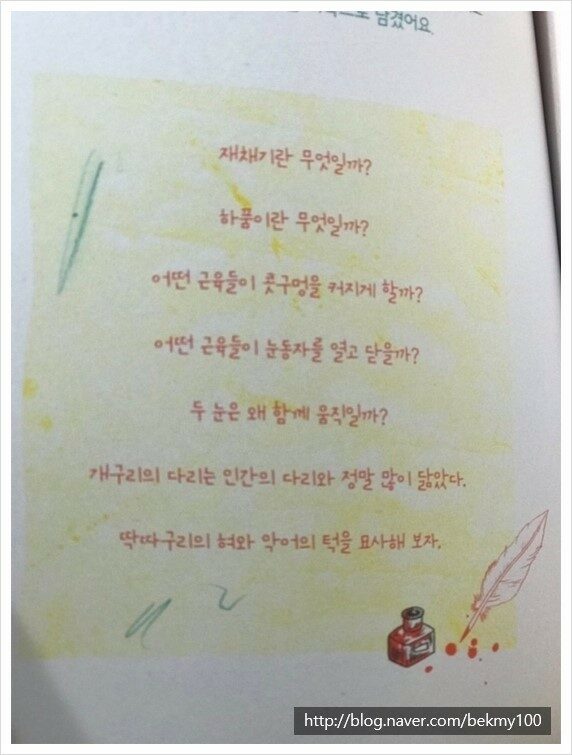 남겼어요.
재채기란 무엇일까?
하품이란 무엇일까?
어떤 근육들이 콧구멍을 커지게 할까?
어떤 근육들이 눈동자를 열고 닫을까?
두 눈은 왜 함께 움직일까?
개구리의 다리는 인간의 다리와 정말 많이 닮았다.
딱따구리의 혀와 악어의 턱을 묘사해 보자.
http://blog.naver.com/bekmy100